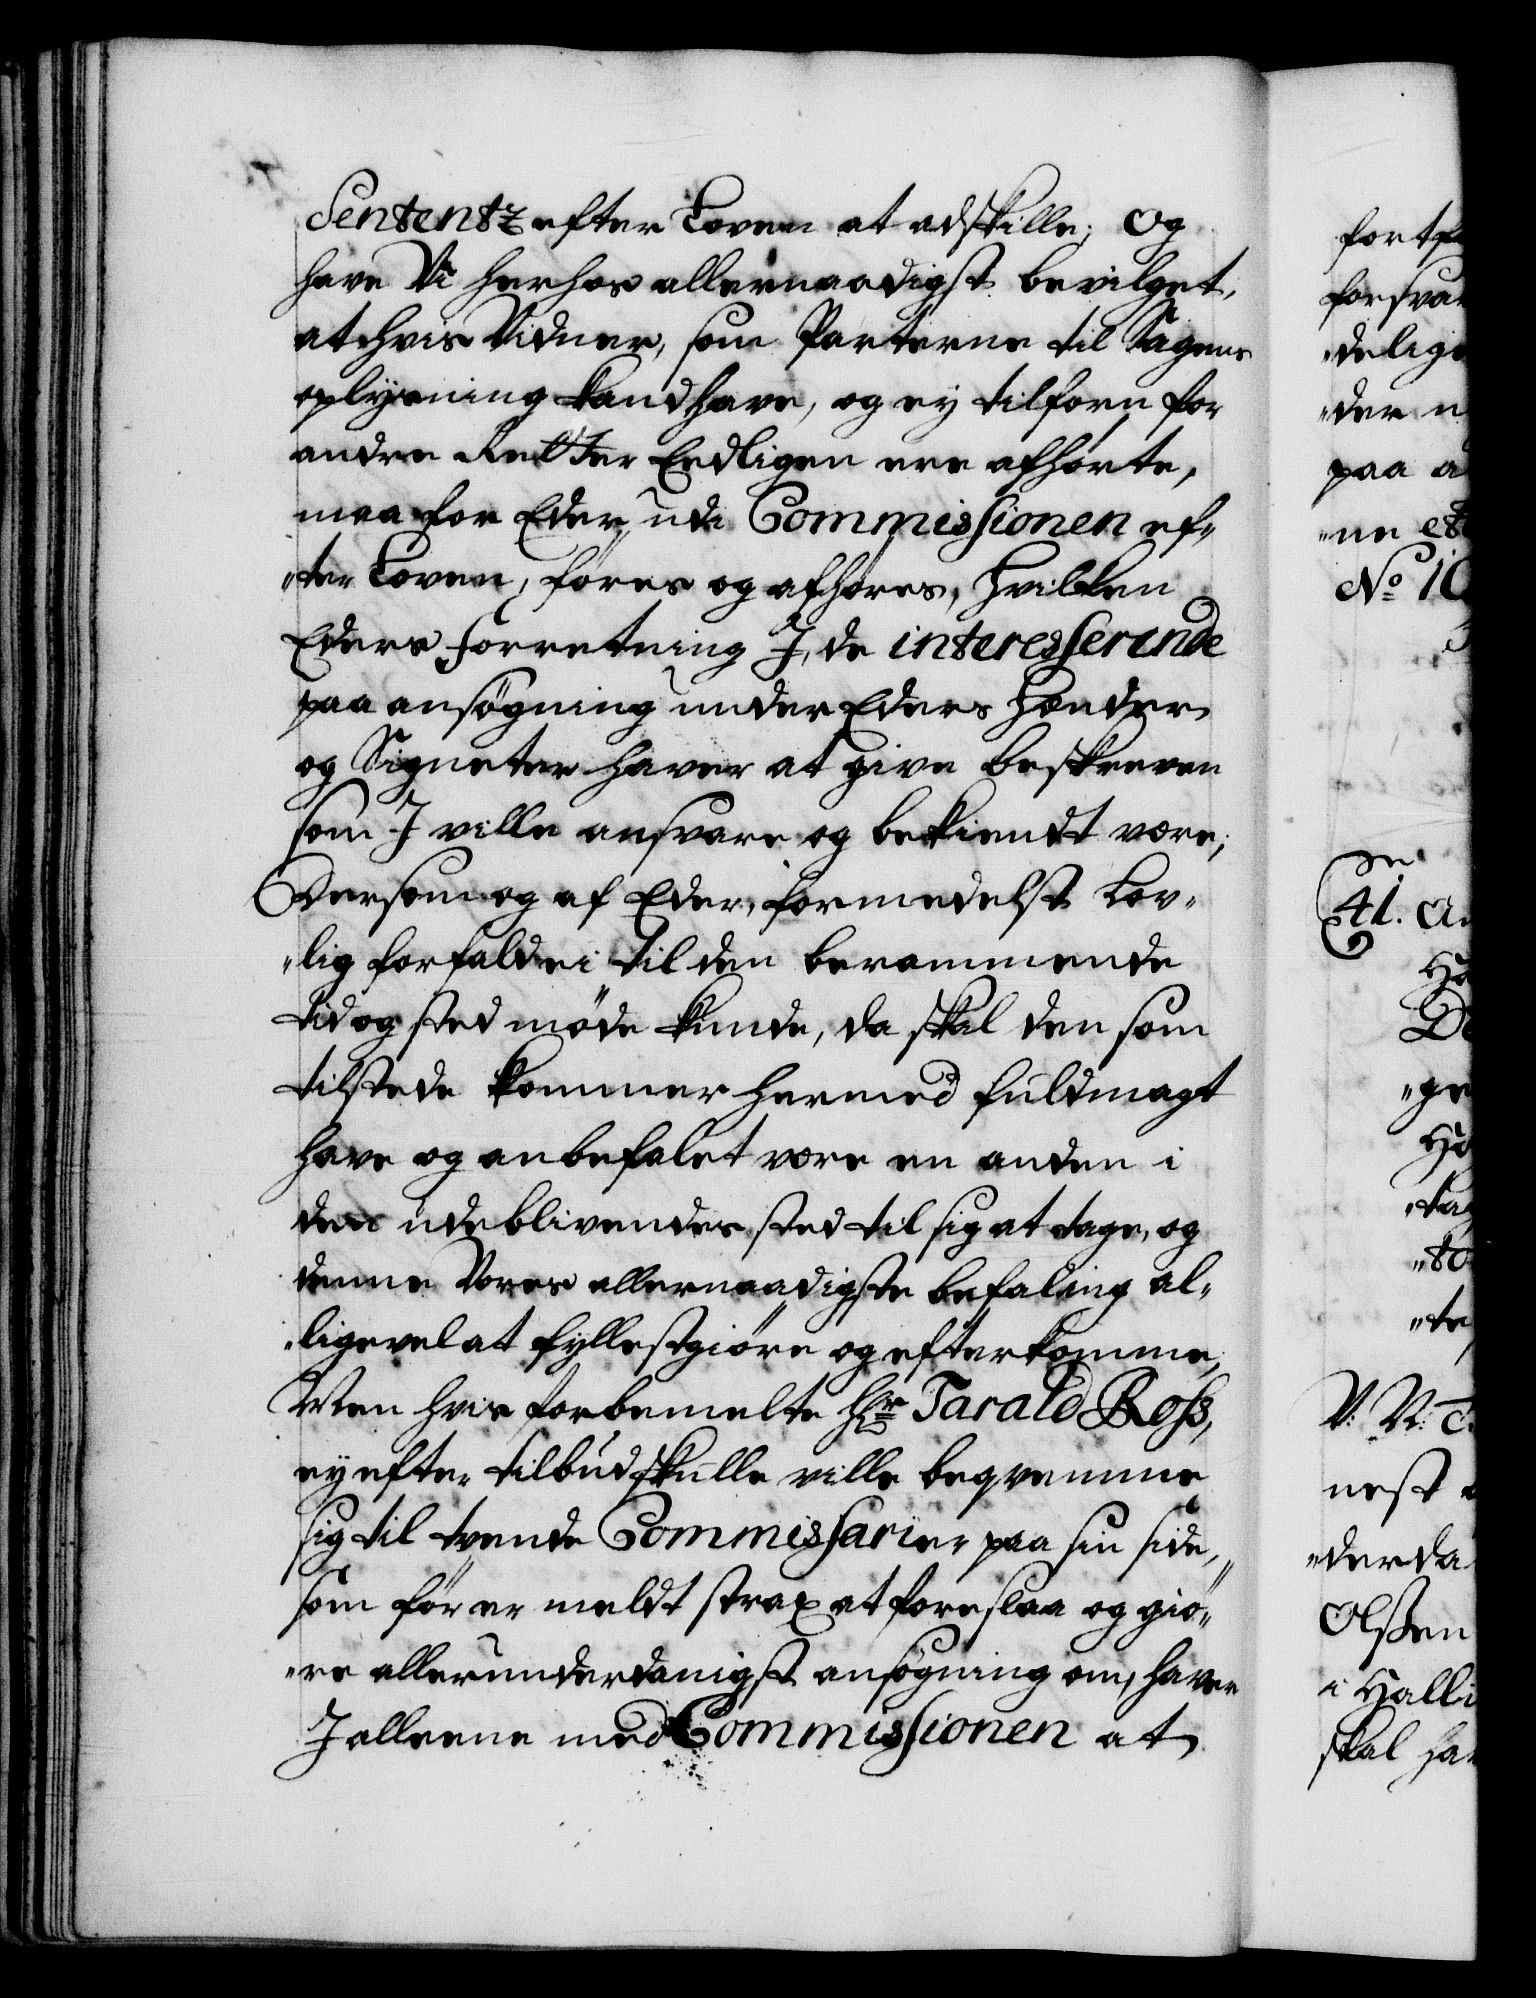 Sententz efter Loven at adskille; Og
have Vi herhos allernaadigst bevilget,
at hvis Vidner, som Parterne til Sagens
oplysning kand have, og ey tilforn for
andre Retter Eedligen ere afhørte,
maa for Eder, udi Commissionen ef„
„ter Loven, føres og afhøres, Hvilken
Eders Forretning I, de interesserende
paa ansøgning under Eders Hænder
og Signeter haver at give beskreven
som I ville ansvare og bekiendt være;
Dersom og af Eder, formedelst Lov„
„lig forfald ei til den berammende
tid og sted møde kunde, da skal den som
tilstede kommer hermed fuldmagt
have og anbefalet være en anden i
den udeblivendes sted til sig at tage, og
denne Vores allernaadigste befaling al„
„ligevel at fyllestgiøre og efterkomme;
Men hvis forbemelte Hr Tarald Ross,
ey efter tilbud skulle ville beqvemme
sig til tvende Commissarier paa sin side,
som før er meldt strax at foreslaa og giø„
„re allerunderdanigst ansøgning om, haver
I alleene med Commissionen at
fort
forsvar
„delig
„der
paa a
„ne
No 10
41.
„ge
„tag
„to
„te
V: V: T.
nest
„derda
Olssen
i Halli
skal ha